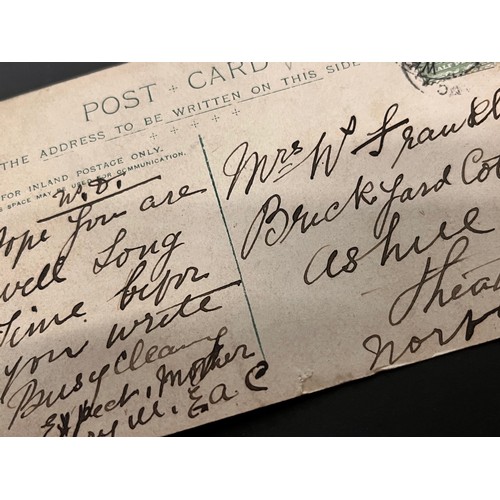 POST CARD
THE ADDRESS TO BE WRITTEN ON THIS SIDE
FOR INLAND POSTAGE ONLY,
SPACE MAY BE USED FOR COMMUNICATION.
W.D.
hope you are
well Long
time befor
you write
Busy Cleaning
Expect, Mother
M. E a C
Mrs W Frankl
Brick Yard Cot
ashill
thet
Norf